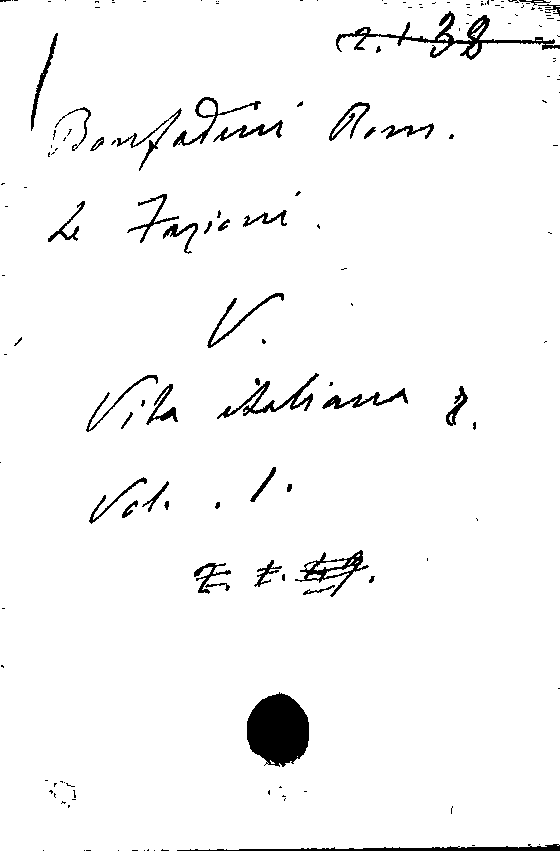 2.1.38
Bonfadini Rom.
Le Fazioni.
V.
Vita italiana
Vol. . 1.